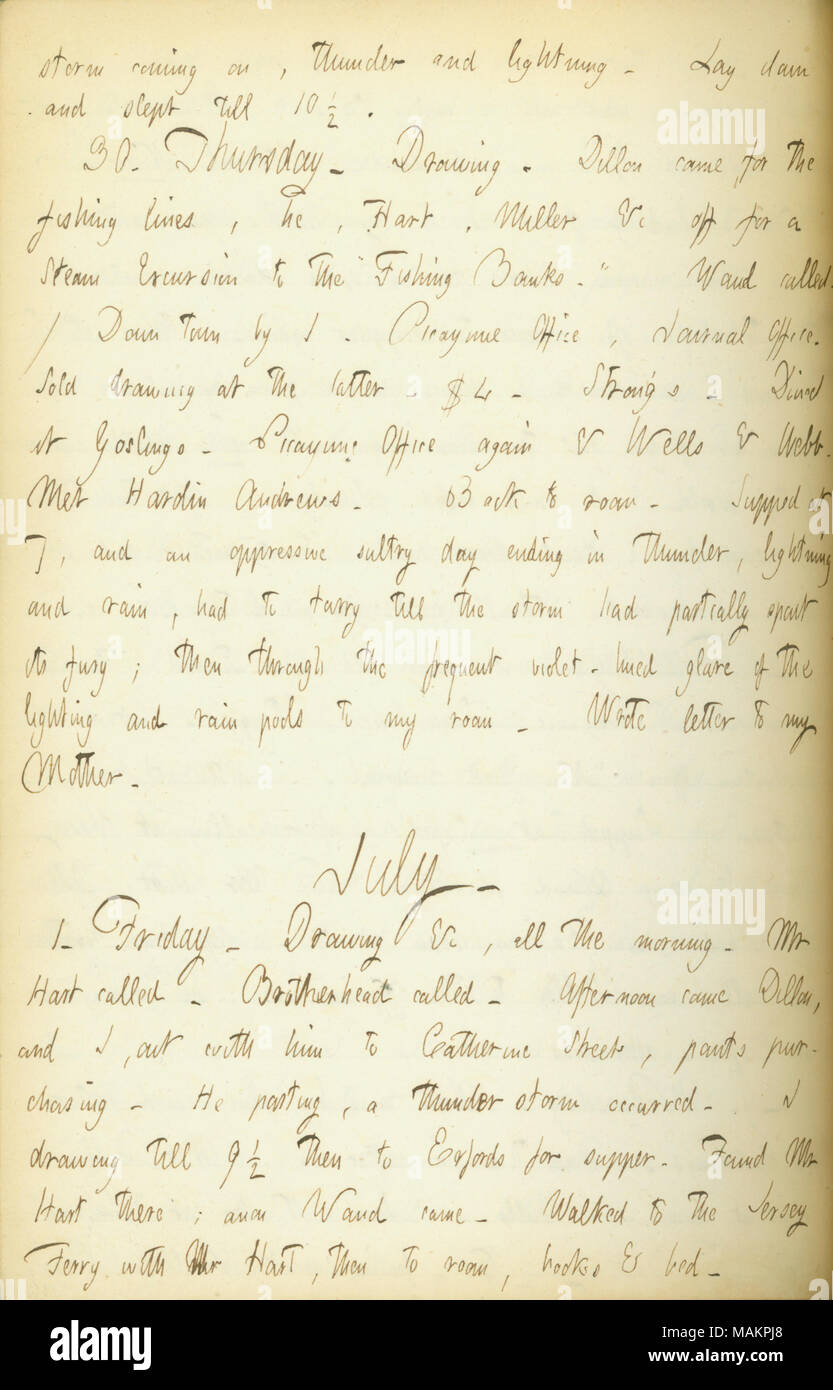 storm coming on, thunder and lightning - Lay down
and slept till 10 ½.
30. Thursday - Drawing. Dillon came for the
fishing lines, he, Hart, Miller &c off for a
Steam Excursion to the "Fishing Banks." Waud called.
/ Down town by 1 - Picayune Office, Journal Office.
Sold drawing at the latter - $4 - Strong's - Dined
at Goslings - Picayune Office again & Wells & Webb.
Met Hardin Andrews - Back to room - Supped at
7, and an oppressive sultry day ending in thunder, lightning
and rain, had to tarry till the storm had partially spent
its fury; then through the frequent violet-hued glare of the
lighting and rain pools to my room - Wrote letter to my
Mother -
July -
1 - Friday - Drawing &c, all the morning - Mr
Hart called - Brotherhead called - Afternoon came Dillon,
and I, out with him to Catherine Street, pants pur-
chasing - He parting, a thunder storm occurred - I
drawing till 9 ½ then to Erfords for supper - Found Mr
Hart there; anon Waud came - Walked to the Jersey
Ferry with Mr Hart, then to room, books & bed -
alamy
Image ID: MAKPJ8
www.alamy.com